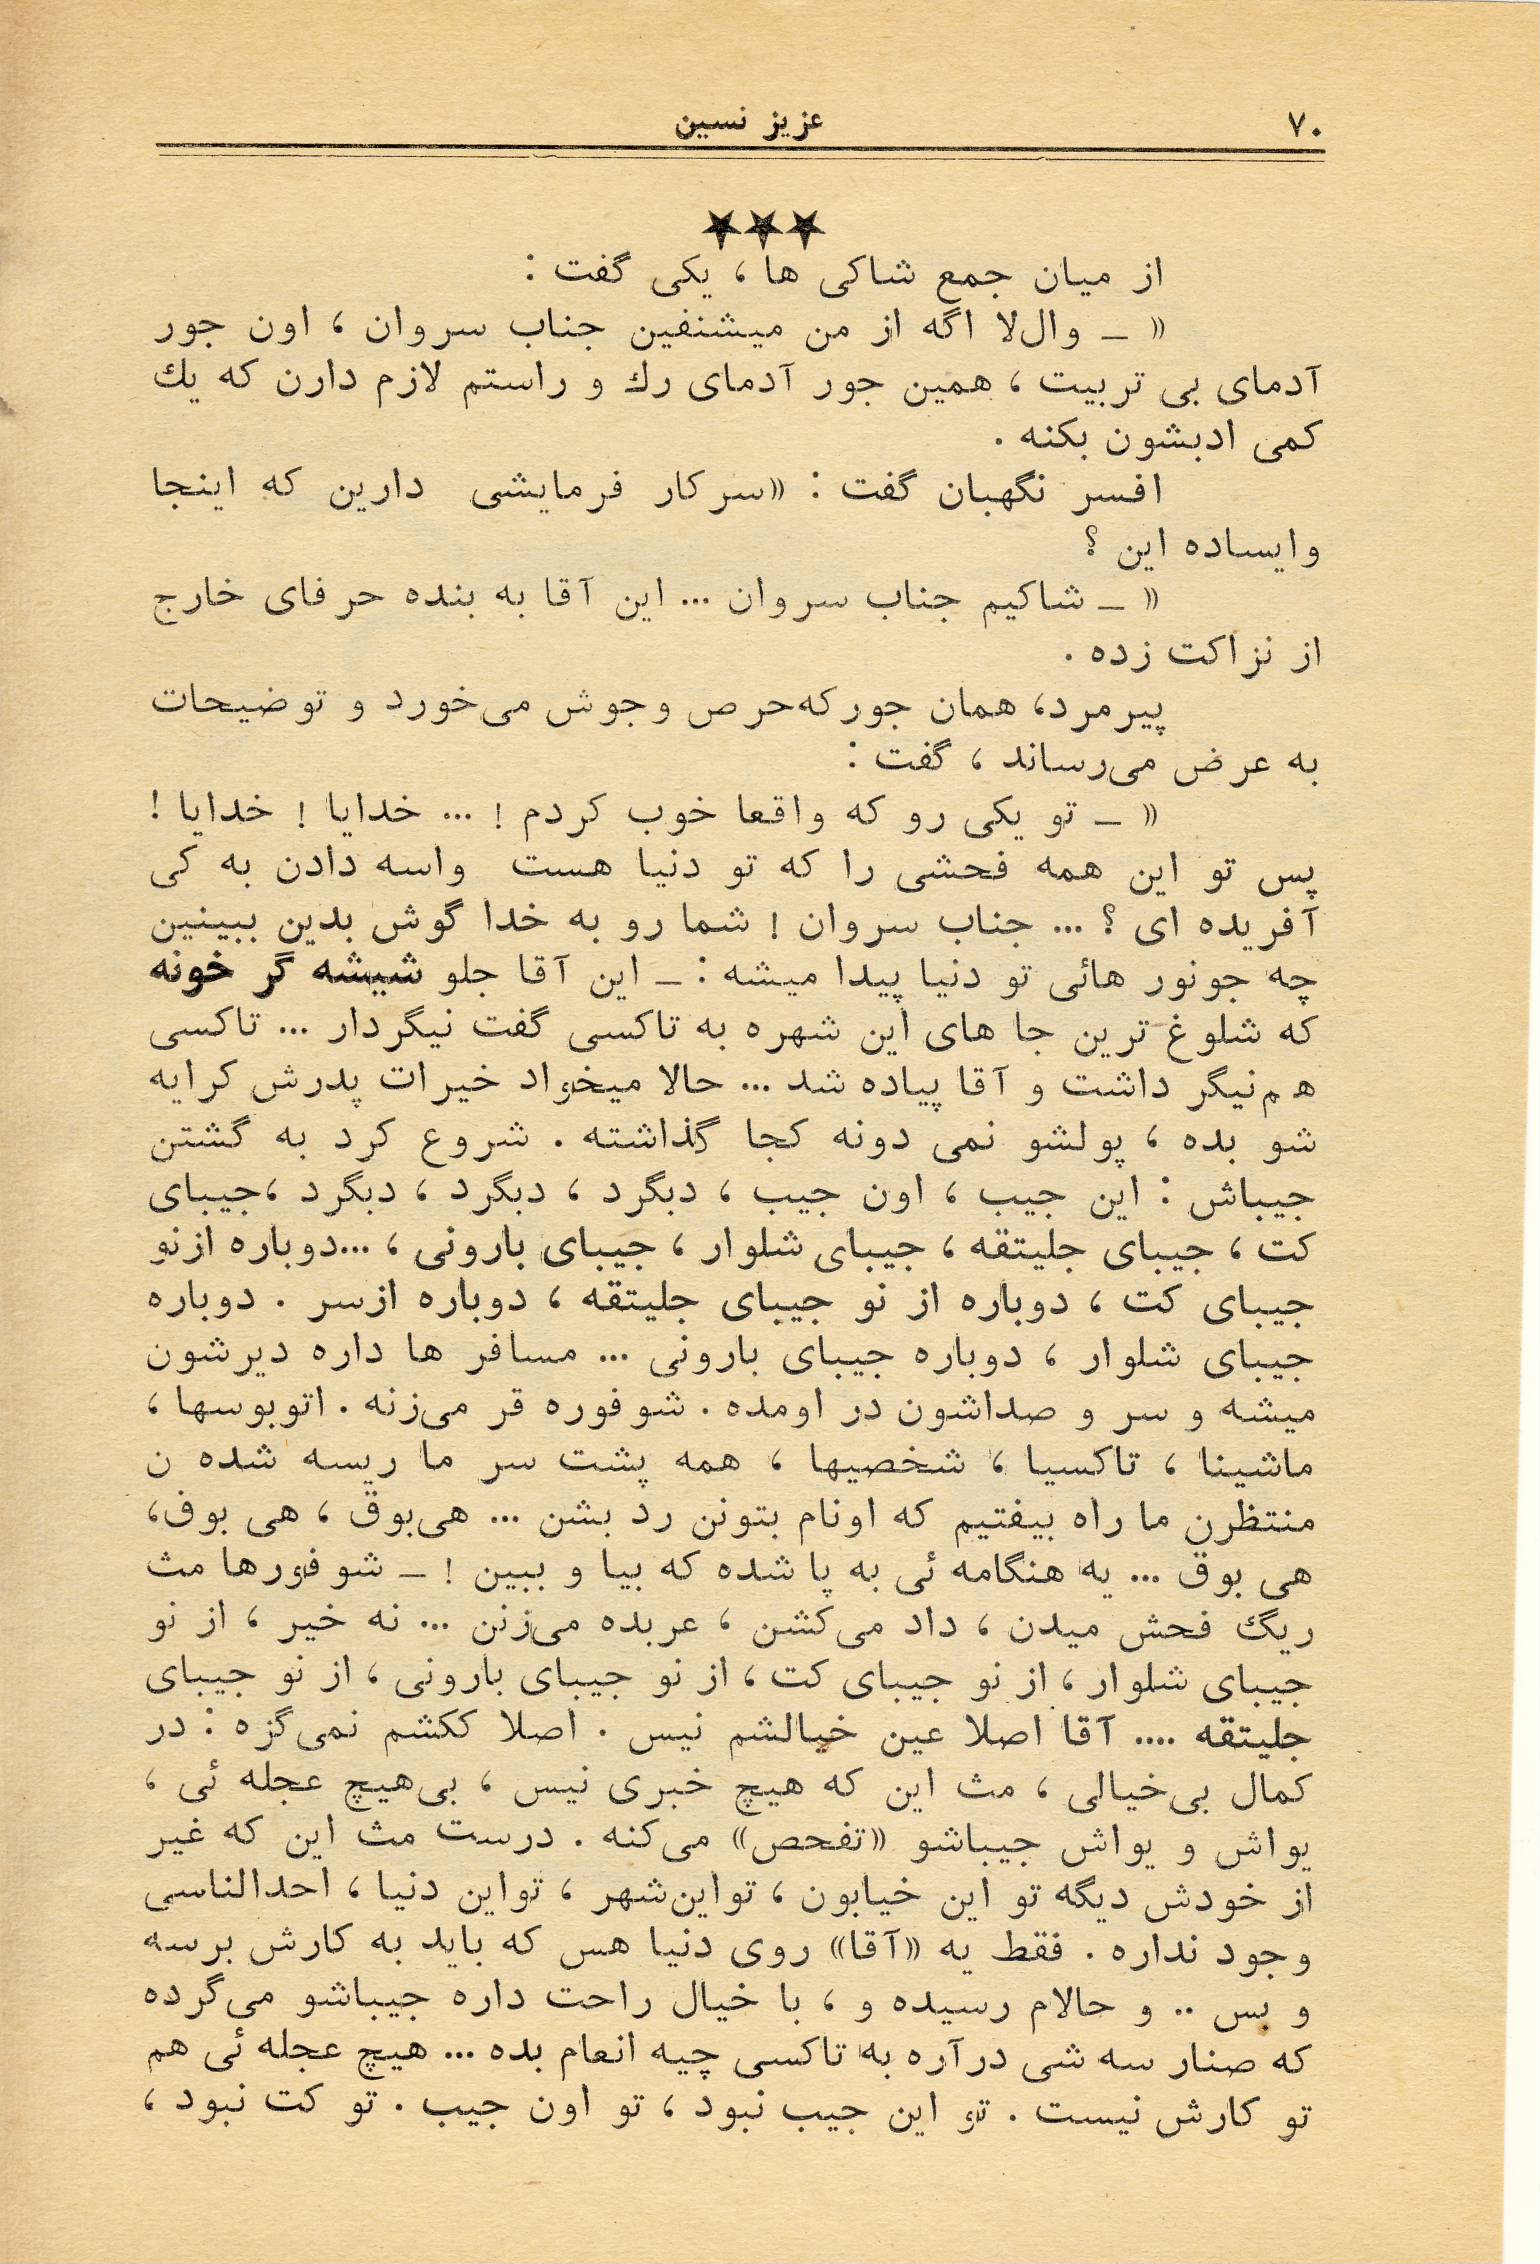 ۷۰
عزیز نسین
★★★
از میان جمع شاکی ها ، یکی گفت :
« – وال‌لا اگه از من میشنفین جناب سروان ، اون جور
آدمای بی تربیت ، همین جور آدمای رك و راستم لازم دارن که يك
کمی ادبشون بکنه .
افسر نگهبان گفت : «سرکار فرمایشی دارین که اینجا
وایساده این ؟
« – شاکیم جناب سروان ... این آقا به بنده حرفای خارج
از نزاکت زده .
پیرمرد، همان جورکه‌حرص وجوش می‌خورد و توضیحات
به عرض می‌رساند ، گفت :
« – تو یکی رو که واقعا خوب کردم ! ... خدایا ! خدایا !
پس تو این همه فحشی را که تو دنیا هست واسه دادن به کی
آفریده ای ؟ ... جناب سروان ! شما رو به خدا گوش بدین ببینین
چه جونور هائی تو دنیا پیدا میشه : – این آقا جلو شیشه گر خونه
که شلوغ ترین جا های این شهره به تاکسی گفت نیگردار ... تاکسی
هم‌نیگر داشت و آقا پیاده شد ... حالا میخواد خیرات پدرش کرایه
شو بده ، پولشو نمی دونه کجا گذاشته . شروع کرد به گشتن
جیباش : این جیب ، اون جیب ، دبگرد ، دبگرد ، دبگرد ،جیبای
کت ، جیبای جلیتقه ، جیبای شلوار ، جیبای بارونی ، ...دوباره ازنو
جیبای کت ، دوباره از نو جیبای جلیتقه ، دوباره ازسر . دوباره
جیبای شلوار ، دوباره جیبای بارونی ... مسافر ها داره دیرشون
میشه و سر و صداشون در اومده . شوفوره قر می‌زنه . اتوبوسها ،
ماشینا ، تاکسیا ، شخصیها ، همه پشت سر ما ریسه شده ن
منتظرن ما راه بیفتیم که اونام بتونن رد بشن ... هی‌بوق ، هی بوف،
هی بوق ... یه هنگامه ئی به پا شده که بیا و ببین ! – شوفورها مث
ریگ فحش میدن ، داد می‌کشن ، عربده می‌زنن ... نه خیر ، از نو
جیبای شلوار ، از نو جیبای کت ، از نو جیبای بارونی ، از نو جیبای
جلیتقه .... آقا اصلا عین خیالشم نیس . اصلا ککشم نمی‌گزه : در
کمال بی‌خیالی ، مث این که هیچ خبری نیس ، بی‌هیچ عجله ئی ،
یواش و یواش جیباشو «تفحص» می‌کنه . درست مث این که غیر
از خودش دیگه تو این خیابون ، تواین‌شهر ، تواین دنیا ، احدالناسی
وجود نداره . فقط یه «آقا» روی دنیا هس که باید به کارش برسه
و بس .. و حالام رسیده و ، با خیال راحت داره جیباشو می‌گرده
که صنار سه شی درآره به تاکسی چیه انعام بده ... هیچ عجله ئی هم
تو کارش نیست . تو این جیب نبود ، تو اون جیب . تو کت نبود ،